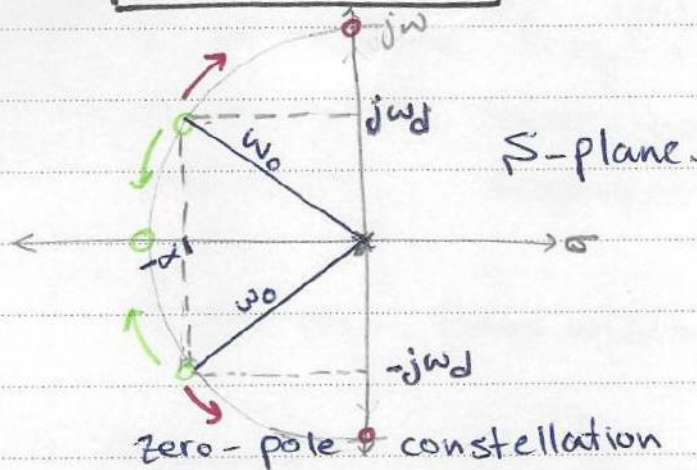 jw
jwd
wo
S-plane.
σ
-α
wo
-jwd
zero-pole constellation